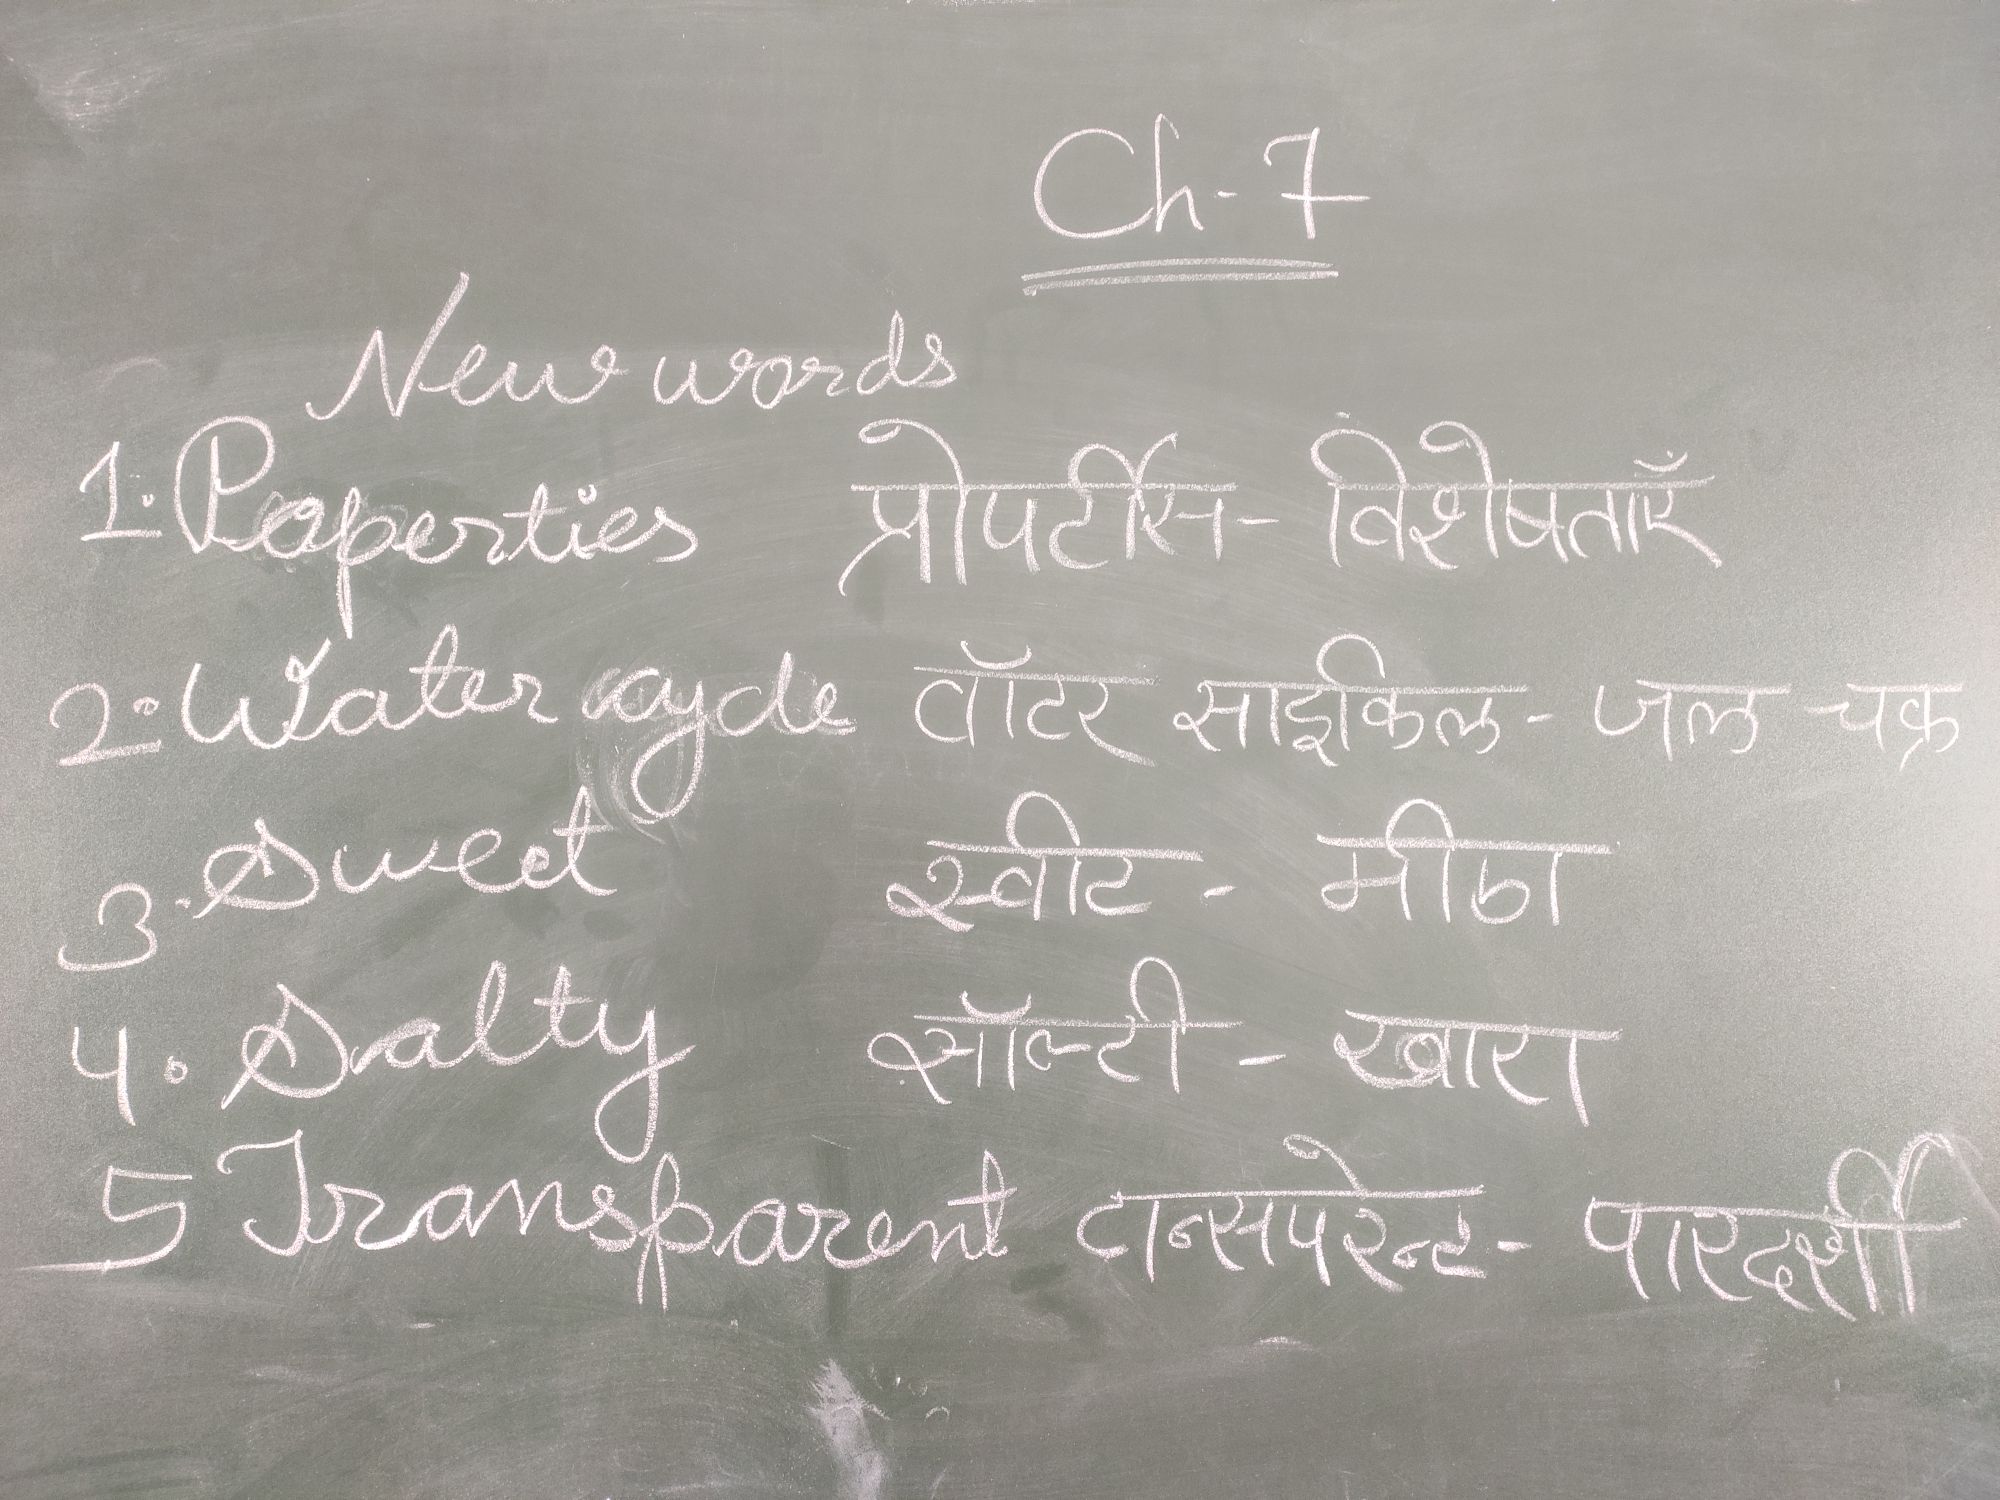 Ch-7
New words
1. Properties प्रोपर्टीस - विशेषताएँ
2. Water cycle वॉटर साइकिल - जल चक्र
3. Sweet स्वीट - मीठा
4. Salty सॉल्टी - खारा
5 Transparent टान्सपरेन्ट - पारदर्शी